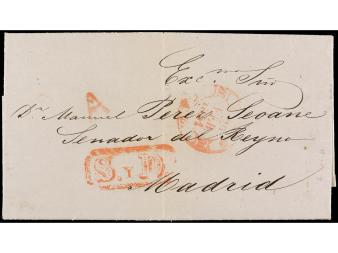 Exc.mo Sñr
A
Dn. Manuel Perez Seoane
Senador del Reyno
S.Y P
Madrid